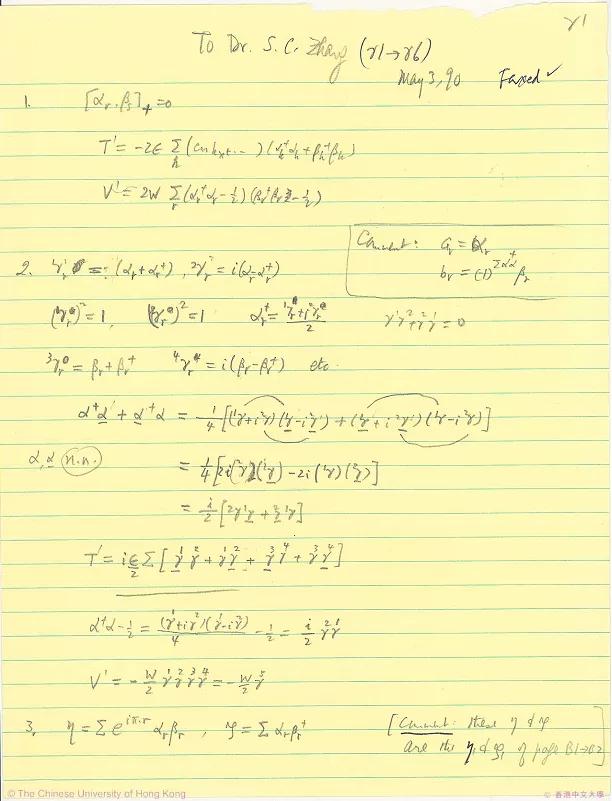 γ1
To Dr. S. C. Zhang (γ1→γ6)
May 3, 90 Faxed ✓
1. [αr, βs]+ = 0
T' = -2ε Σk (cos kx+...) (αk⁺αk + βk⁺βk)
V' = 2W Σr (αr⁺αr - 1/2) (βr⁺βr - 1/2)
Comment: ar = αr
br = (-1)^Σα⁺α βr
2. ¹γr = (αr + αr⁺), ²γr = i(αr - αr⁺)
(¹γr)² = 1, (²γr)² = 1 αr⁺ = (¹γr + i²γr)/2 γ¹γ² + γ²γ¹ = 0
³γr = βr + βr⁺ ⁴γr = i(βr - βr⁺) etc.
α⁺α + α⁺α = 1/4 [(¹γ + i²γ)(¹γ - i²γ) + (¹γ + i²γ)(¹γ - i²γ)]
α, α n.n. = 1/4 [2i(²γ)(¹γ) - 2i(¹γ)(²γ)]
= i/2 [²γ¹γ + ²γ¹γ]
T' = iε/2 Σ [¹γ²γ + ¹γ²γ + ³γ⁴γ + ³γ⁴γ]
α⁺α - 1/2 = (¹γ + i²γ)(¹γ - i²γ)/4 - 1/2 = i/2 ²γ¹γ
V' = -W/2 ¹γ²γ³γ⁴γ = -W/2 ⁵γ
3. η = Σ e^{iπ·r} αr βr, = Σ αr βr⁺
[Comment: these η &
are the of page B1→B2]
© The Chinese University of Hong Kong
© 香港中文大學